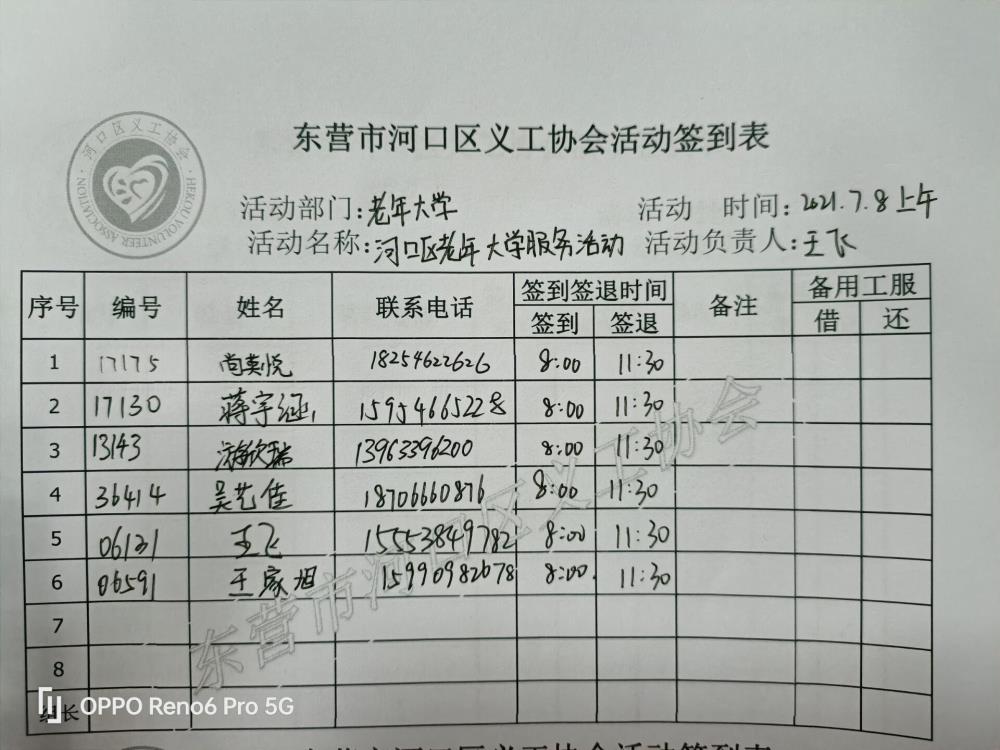 东营市河口区义工协会活动签到表
河口区义工协会
HEKOU VOLUNTEER ASSOCIATION
活动部门：老年大学 活动 时间：2021.7.8上午
活动名称：河口区老年大学服务活动 活动负责人：王飞
序号 编号 姓名 联系电话 签到签退时间 备注 备用工服
签到 签退 借 还
1 17175 尚美悦 18254622626 8:00 11:30
2 17130 蒋宇涵 15954665228 8:00 11:30
3 13143 13963396200 8:00 11:30
4 36414 吴艺佳 18706660876 8:00 11:30
5 06131 王飞 15553849782 8:00 11:30
6 06591 王家旭 15990982678 8:00 11:30
7
8
组长
东营市河口区义工协会
OPPO Reno6 Pro 5G
东营市河口区义工协会活动签到表